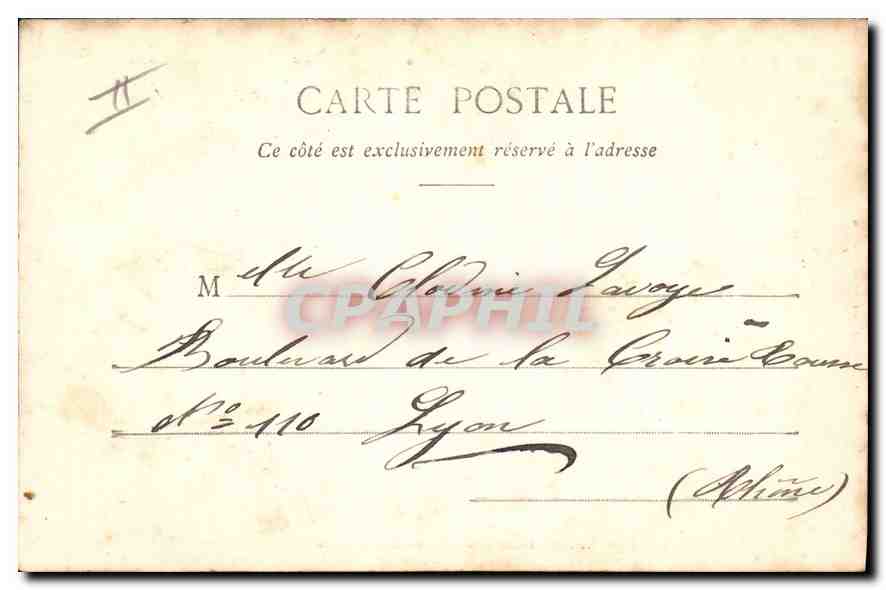 CARTE POSTALE
Ce côté est exclusivement réservé à l'adresse
Melle Clodine Lavoye
CPAPHIL
Boulevard de la Croix
No 110 Lyon
(Rhône)